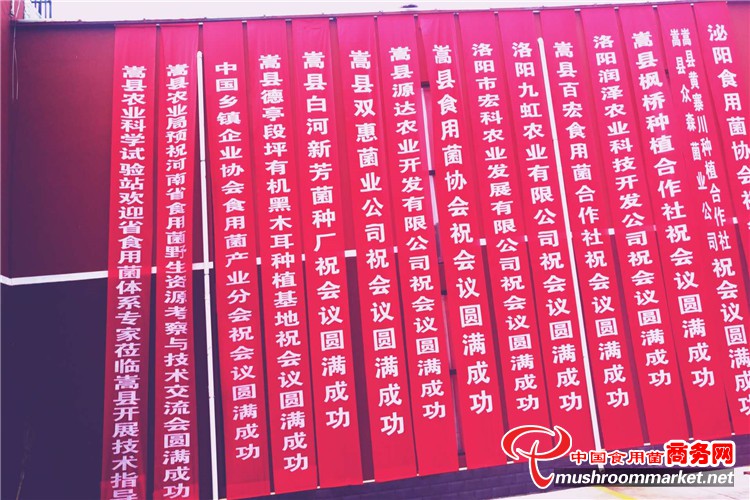 嵩县农业科学试验站欢迎省食用菌体系专家莅临嵩县开展技术指导
嵩县农业局预祝河南省食用菌野生资源考察与技术交流会圆满成功
中国乡镇企业协会食用菌产业分会祝会议圆满成功
嵩县德亭段坪有机黑木耳种植基地祝会议圆满成功
嵩县白河新芳菌种厂祝会议圆满成功
嵩县双惠菌业公司祝会议圆满成功
嵩县源达农业开发有限公司祝会议圆满成功
嵩县食用菌协会祝会议圆满成功
洛阳市宏科农业发展有限公司祝会议圆满成功
洛阳九虹农业有限公司祝会议圆满成功
嵩县百宏食用菌合作社祝会议圆满成功
洛阳润泽农业科技开发公司祝会议圆满成功
嵩县枫桥种植合作社祝会议圆满成功
嵩县众森菌业公司
嵩县黄寨川种植合作社
祝会议圆满成功
泌阳食用菌协会祝会议圆满成功
中国食用菌商务网
mushroommarket.net